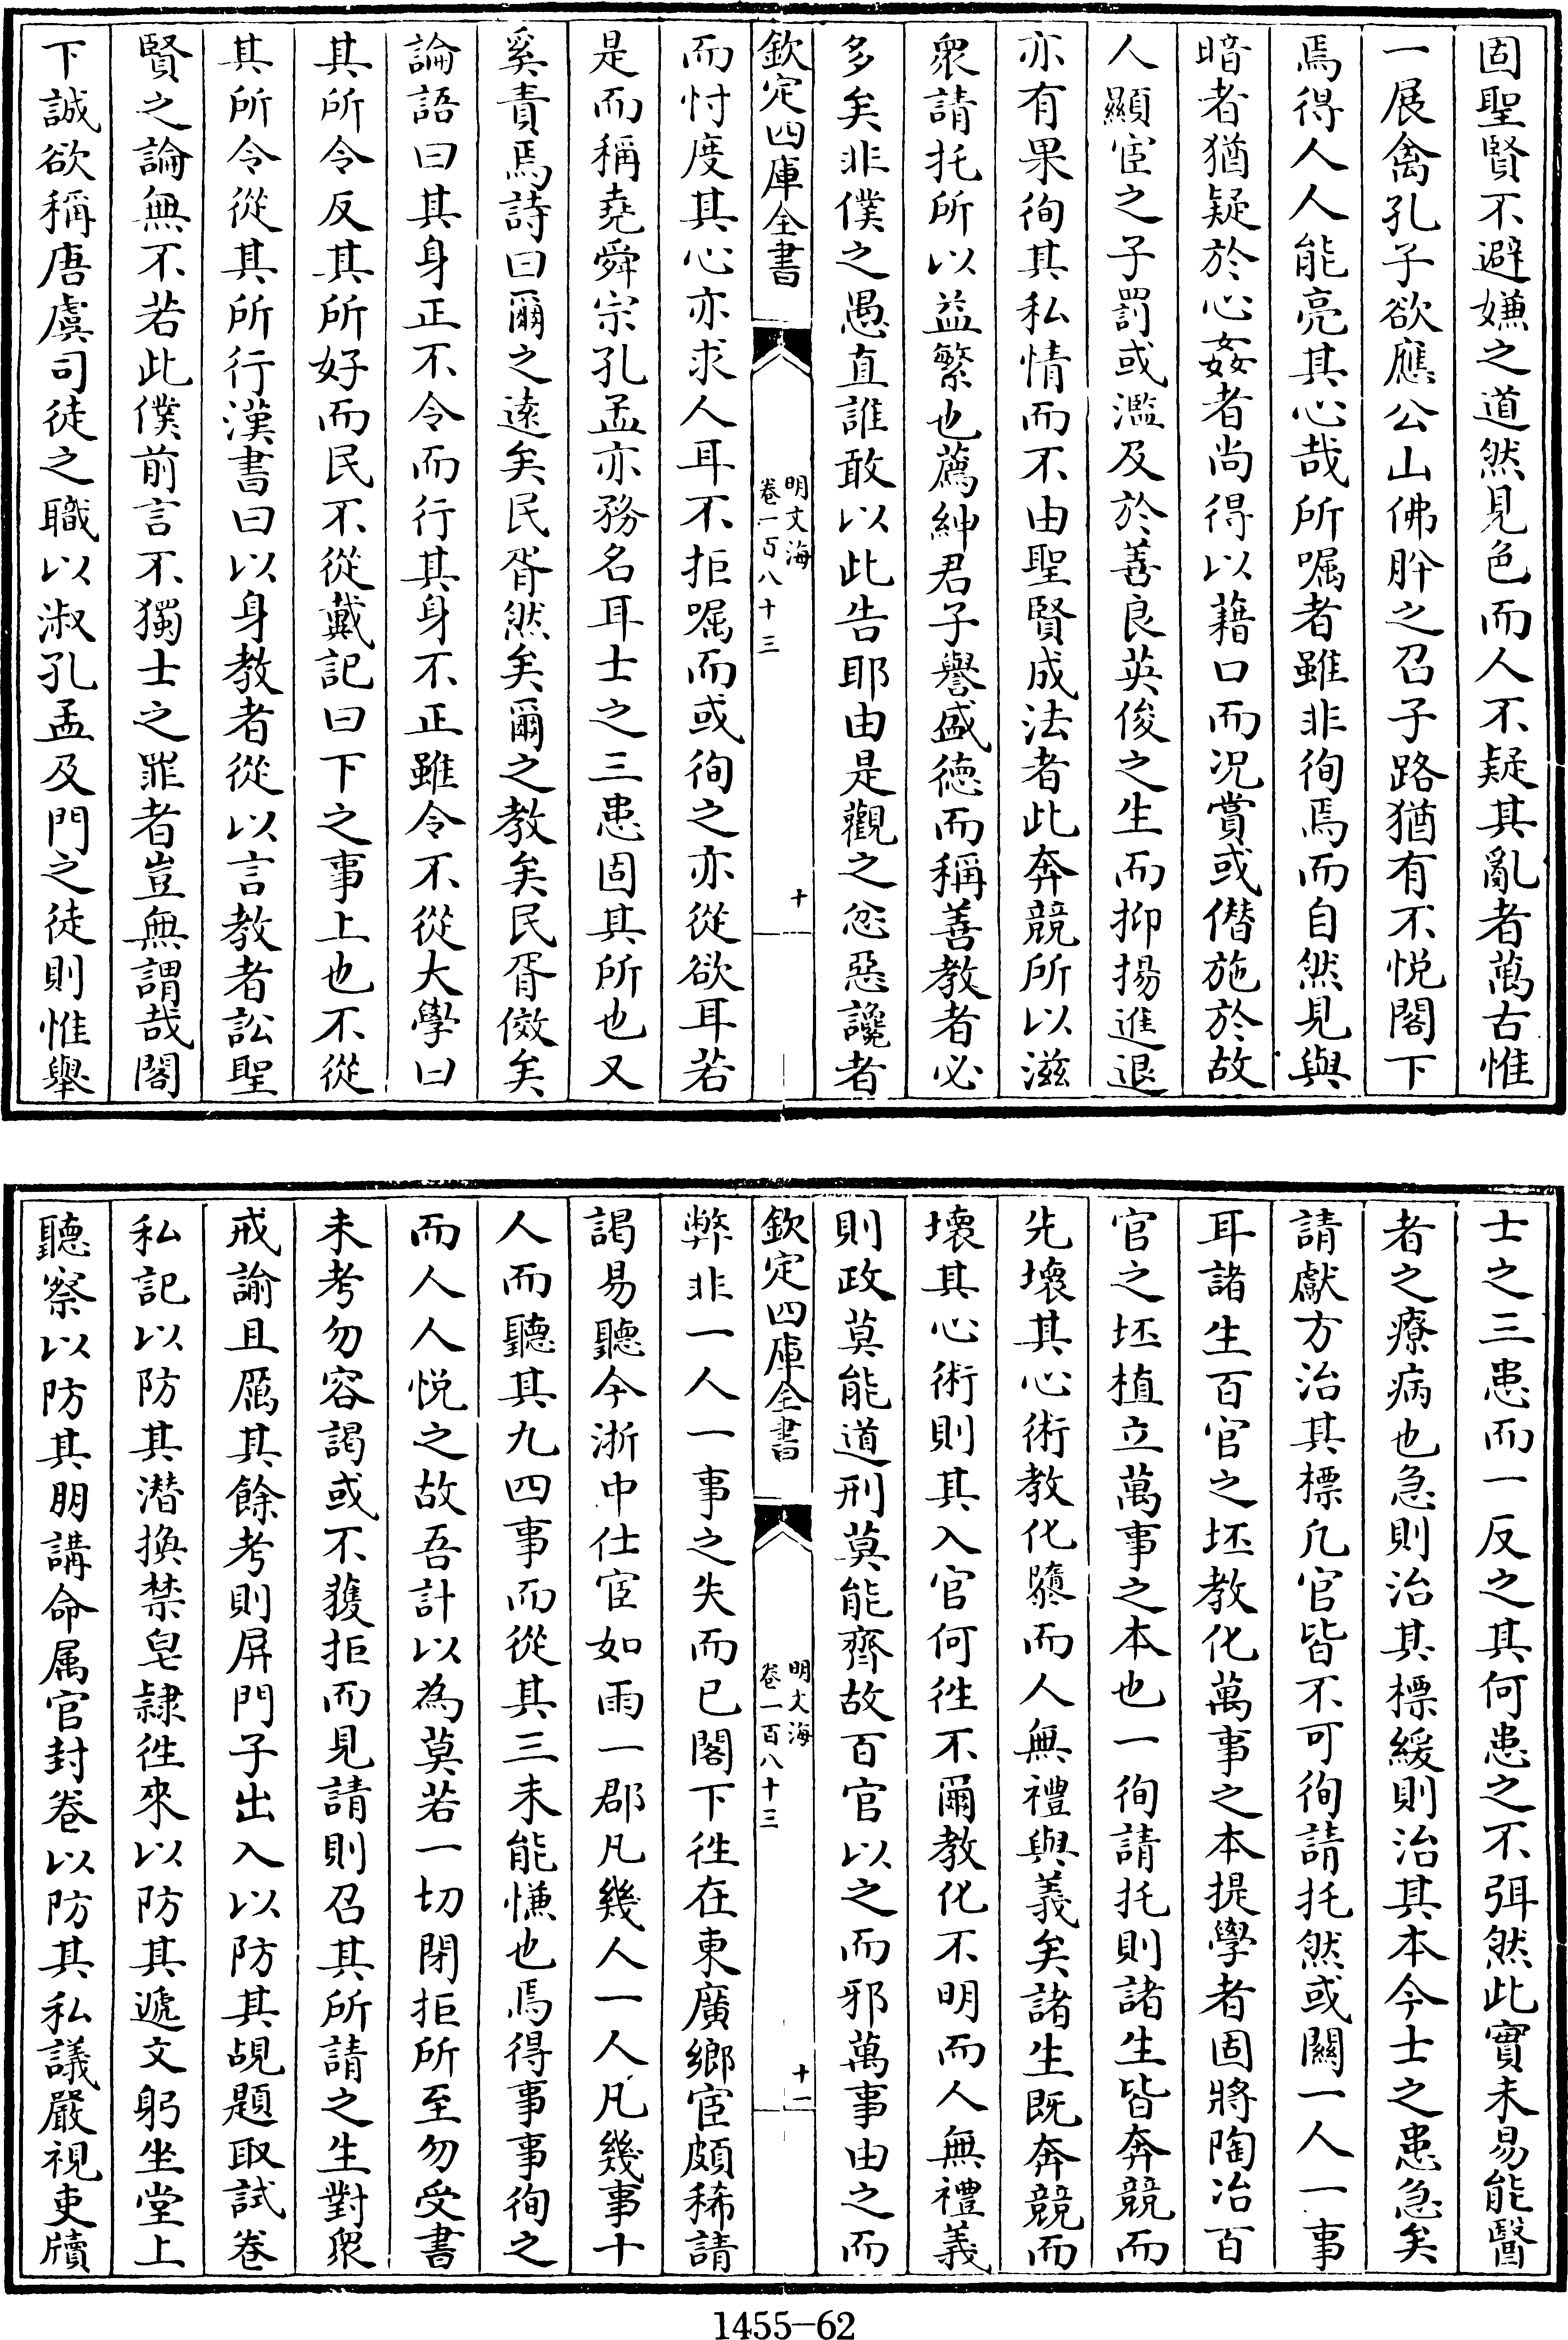 固聖賢不避嫌之道然見色而人不疑其亂者萬古惟
一展禽孔子欲應公山佛肸之召子路猶有不悦閣下
焉得人人能亮其心哉所嘱者雖非徇焉而自然見與
暗者猶疑於心姦者尚得以藉口而况賞或僭施於故
人顯宦之子罰或濫及於善良英俊之生而抑揚進退
亦有果徇其私情而不由聖賢成法者此奔競所以滋
衆請托所以益繁也薦紳君子譽盛徳而稱善教者必
多矣非僕之愚直誰敢以此告耶由是觀之忿惡讒者
欽定四庫全書
明文海
卷一百八十三
十
而忖度其心亦求人耳不拒嘱而或徇之亦從欲耳若
是而稱堯舜宗孔孟亦務名耳士之三患固其所也又
奚責焉詩曰爾之遠矣民胥然矣爾之教矣民胥傚矣
論語曰其身正不令而行其身不正雖令不從大學曰
其所令反其所好而民不從戴記曰下之事上也不從
其所令從其所行漢書曰以身教者從以言教者訟聖
賢之論無不若此僕前言不獨士之罪者豈無謂哉閣
下誠欲稱唐虞司徒之職以淑孔孟及門之徒則惟舉
士之三患而一反之其何患之不弭然此實未易能醫
者之療病也急則治其標緩則治其本今士之患急矣
請獻方治其標凡官皆不可徇請托然或關一人一事
耳諸生百官之坯教化萬事之本提學者固將陶冶百
官之坯植立萬事之本也一徇請托則諸生皆奔競而
先壞其心術教化隳而人無禮與義矣諸生既奔競而
壞其心術則其入官何徃不爾教化不明而人無禮義
則政莫能道刑莫能齊故百官以之而邪萬事由之而
欽定四庫全書
明文海
卷一百八十三
十一
弊非一人一事之失而已閣下徃在東廣鄉宦頗稀請
謁易聽今浙中仕宦如雨一郡凡幾人一人凡幾事十
人而聽其九四事而從其三未能慊也焉得事事徇之
而人人悦之故吾計以為莫若一切閉拒所至勿受書
未考勿容謁或不獲拒而見請則召其所請之生對衆
戒諭且厲其餘考則屏門子出入以防其覘題取試卷
私記以防其潜換禁皂隸徃來以防其遞文躬坐堂上
聽察以防其朋講命属官封卷以防其私議嚴視吏牘
1455-62